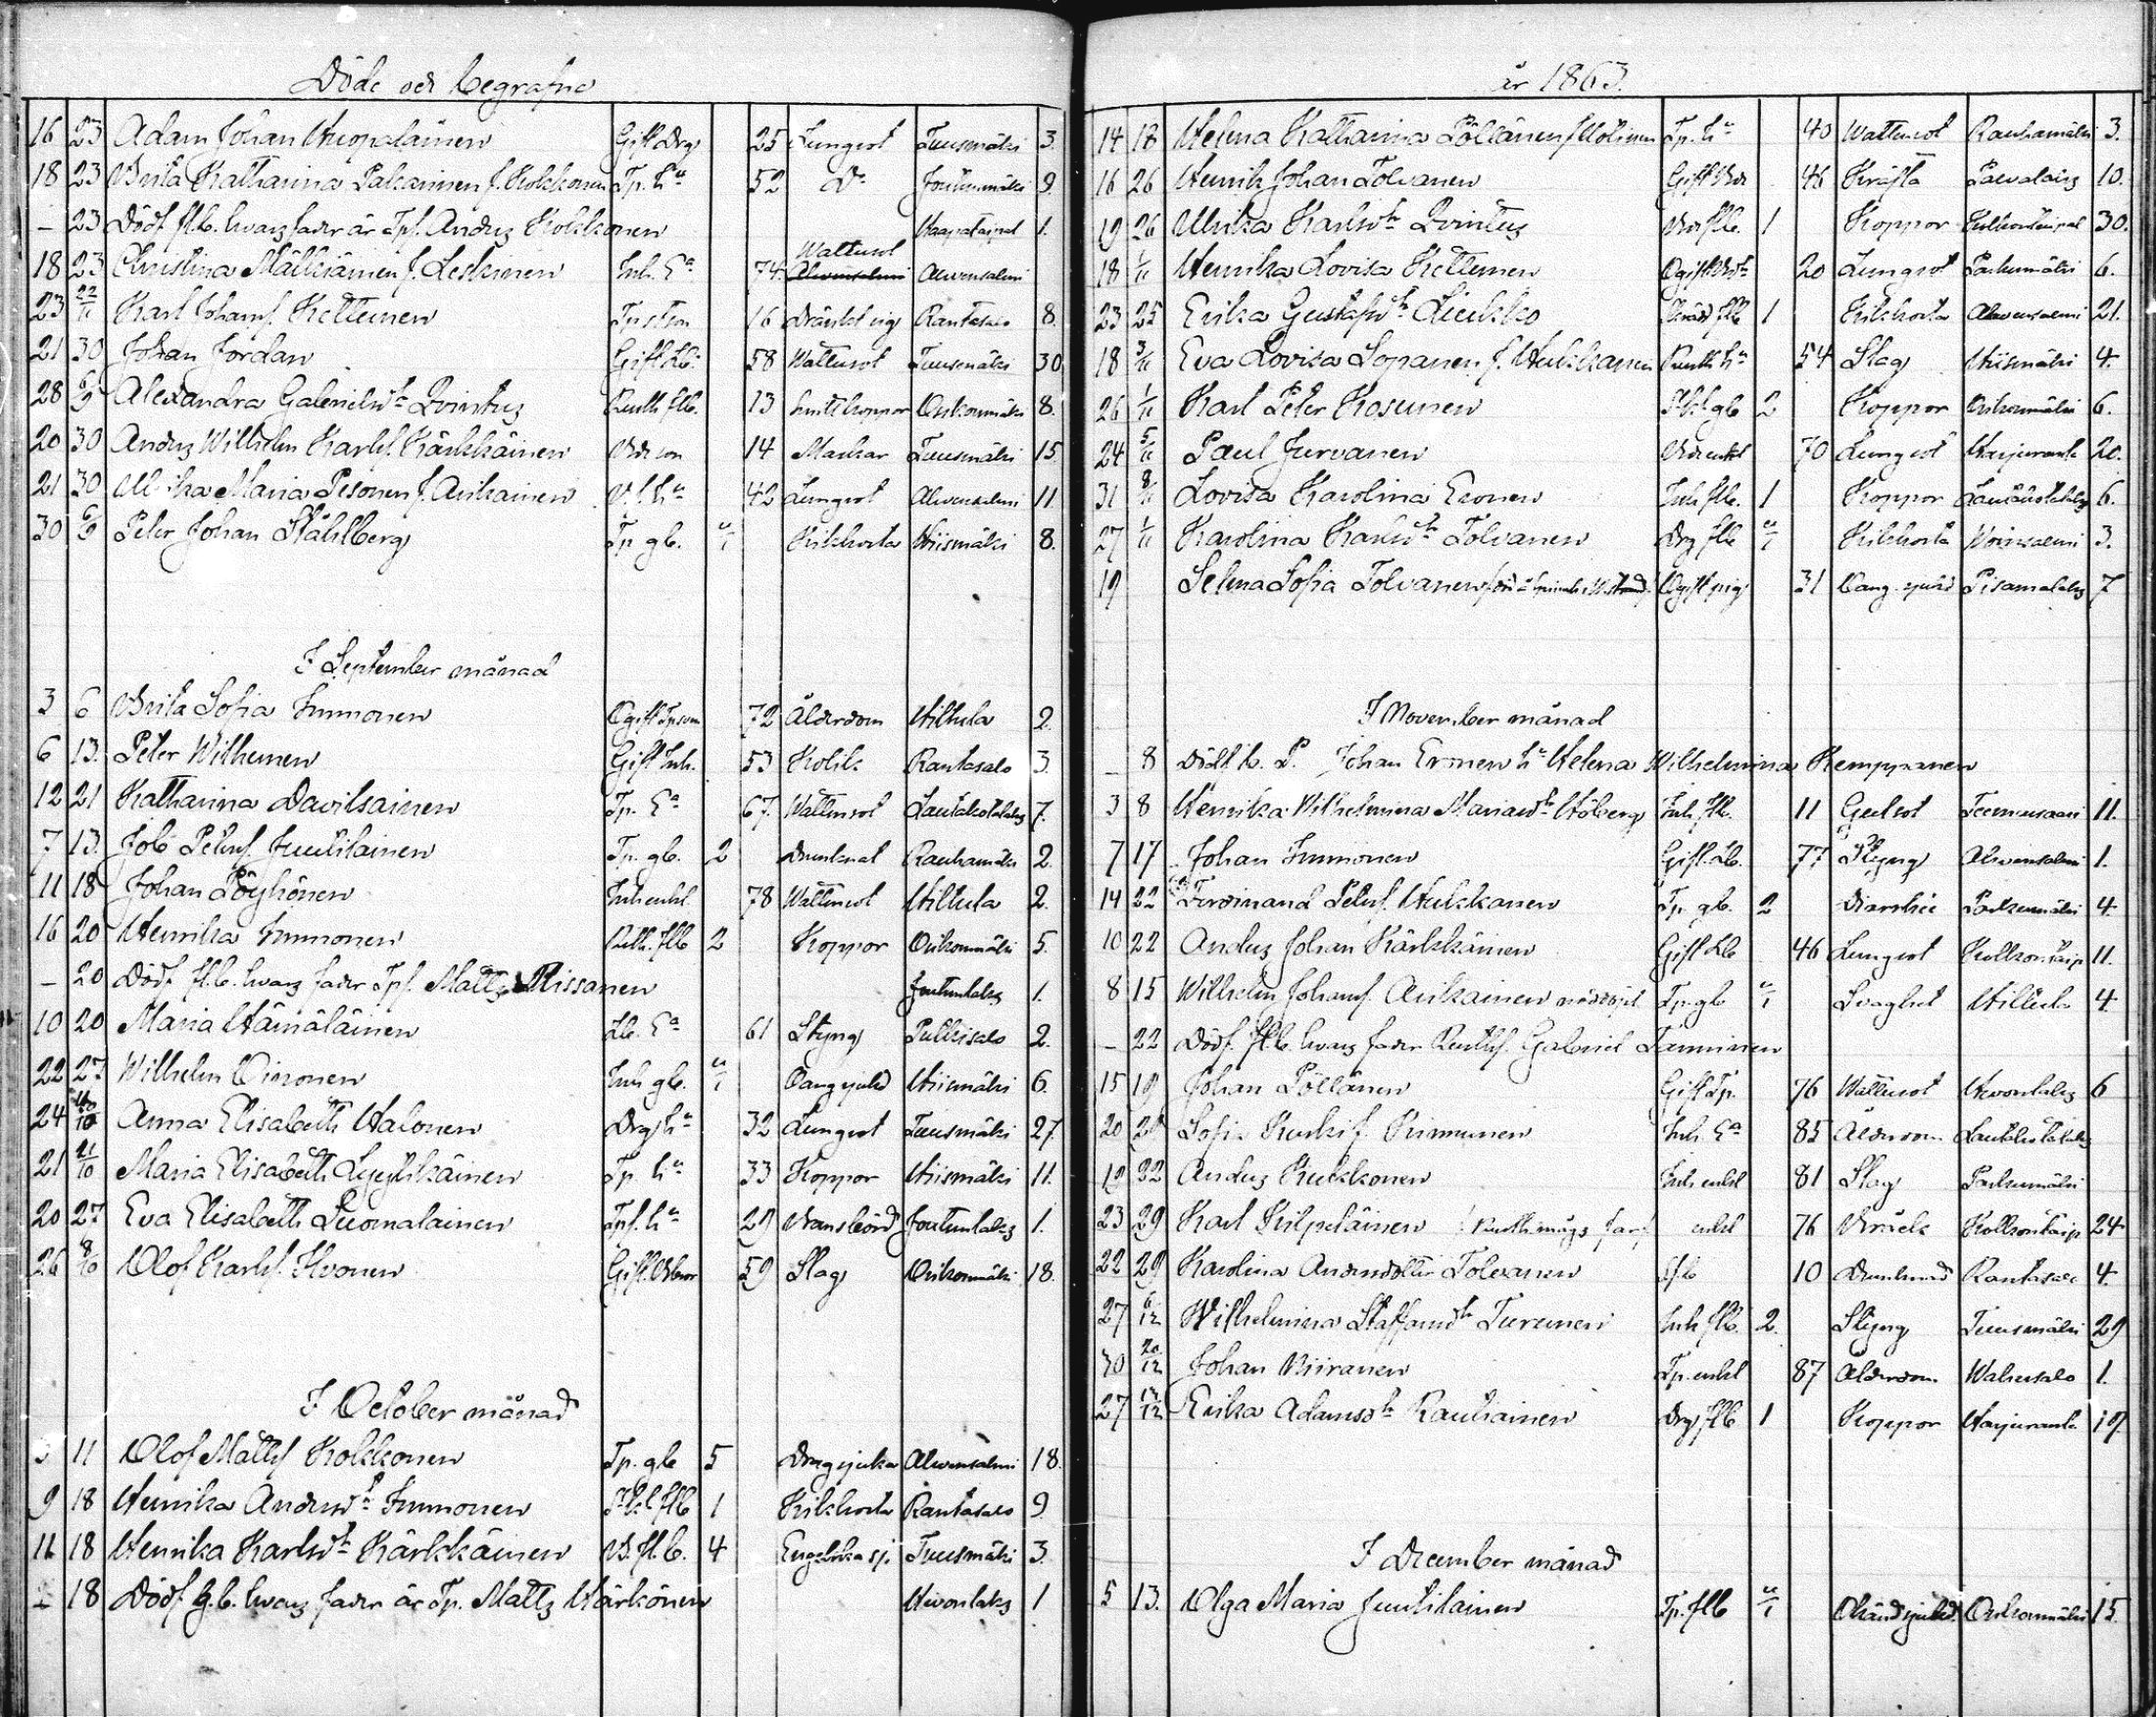 Döde och begrafne
16 23 Adam Johan Huopalainen Gift Drg 25 Lungsot Tuusmäki 3.
18 23 Brita Katharina Pakarinen f. Kokkonen Tp. hu 52 Do Joutenmäki 9
– 23 Dödf. fl.b. hvars fader är Tpf. Anders Kokkonen Haapataipal 1.
18 23 Christina Mälkiäinen f. Leskinen Inh. Ea 74. Wattusot Ahvensalmi
23 22/11 Karl Johans. Kettunen Tp. son 16 Dränkt sig Rantasalo 8.
21 30 Johan Jordan Gift Lb. 58 Wattusot Tuusmäki 30
28 6/9 Alexandra Gabrielsdtr Qvintus Ruth flb. 13 Smittkoppor Oinkonmäki 8.
20 30 Anders Wilhelm Karls. Kärkkäinen Bde son 14 Maskar Tuusmäki 15.
21 30 Ulrika Maria Pesonen f. Asikainen B.f. hu 42 Lungsot Ahvensalmi 11.
30 6/9 Peter Johan Ståhlberg Tp gb. Kikhosta Hiismäki 8.
I September månad
3 6 Brita Sofia Immonen Ogift Tp. 72 Ålderdom Hiltula 2.
6 13. Peter Wilhunen Gift Inh. 53 Kolik Rantasalo 3.
12 21 Katharina Davitsainen Tp. Ea 67. Wattusot Lautakotalaks 7.
7 13. Job Peters. Juutilainen Tp. gb. 2 Drunknat Rauhamäki 2.
11 18 Johan Pöyhönen Inh enkl. 78 Wattusot Hiltula 2.
16 20 Henrika Immonen Ruth. flb 2 Koppor Oinkonmäki 5.
– 20 Dödf. fl.b. hvars fader Tpf. Matts Nissanen Joutenlaks 1.
10 20 Maria Hämäläinen Lb. Ea 61 Styng Pulkisalo 2.
22 27 Wilhelm Oinonen Inh gb. Oangsjukd Hiismäki 6.
24 Anna Elisabeth Halonen Drg hu 32 Lungsot Tuusmäki 27.
21 21/10 Maria Elisabeth Lyytikäinen Tp hu 33 Koppor Hiismäki 11.
20 27 Eva Elisabeth Suomalainen Tpf. hu 29 Barnsbörd Joutenlaks 1.
26 8/10 Olof Karls. Ihvonen Gift. 59 Slag Oinkonmäki 18.
I October månad
11 Olof Matts. Kokkonen Tp. gb 5 Dragsjuka Ahvensalmi 18.
9 18 Henrika Andersdtr Immonen flb 1 Kikhosta Rantasalo 9
11 18 Henrika Karlsdtr Kärkkäinen B. fl.b. 4 Engelska sj. Tuusmäki 3.
18 Dödf. g.b. hvars fader är Tp. Matts Härkönen Hevonlaks 1
år 1863.
14 18 Helena Katharina Pöllänen f. Holinen Tp. hu 40 Wattusot Rauhamäki 3.
16 26 Henrik Johan Tolvanen Gift Bde 46 Kräfta 10.
19 26 Ulrika Karlsdtr Qvintus Bde flb. 1 Koppor 30.
18 1/11 Henrika Lovisa Kettunen Ogift 20 Lungsot Parkumäki 6.
23 25 Erika Gustafsdtr Liukko flb 1 Kikhosta Ahvensalmi 21.
18 3/11 Eva Lovisa Sopanen f. Hukkanen Ruth hu 54 Slag Hiismäki 4.
26 1/11 Karl Peter Kosunen gb 2 Koppor Oinkonmäki 6.
24 5/11 Paul Jurvanen Bde enkl 70 Lungsot Harjuranta 20.
31 8/11 Lovisa Karolina Eronen Inh flb. 1 Koppor Lautakotalaks 6.
27 1/11 Karolina Karlsdtr Tolvanen Drg flb Kikhosta Woinsalmi 3.
19 Selma Sofia Tolvanen Ogift pig 31 Oang. sjukd Pisamalaks 7
I November månad
– 8 Dödf. Johan Eronen hu Helena Wilhelmina Remppanen
3 8 Henrika Wilhelmina Mariasdtr Höberg Inh flb. 11 Gulsot Teemusaari 11.
7 17 Johan Immonen Gift. Lb. 77 Styng Ahvensalmi 1.
14 22 Ferdinand Peters. Hukkanen Tp gb. 2 Diarrhée Parkumäki 4.
10 22 Anders Johan Kärkkäinen Gift Lb 46 Lungsot Kolkontaip 11.
8 15 Wilhelm Johans. Asikainen nöddöpt Tp. gb Svaghet Hiltula 4.
– 22 Dödf. fl.b. hvars fader Ruthf. Gabriel Tanninen
15 19 Johan Pöllänen Gift Tp. 76 Wattusot Hevonlaks 6
20 Sofia Kurki f. Kinnunen Inh. Ea 85 Ålderdom Lautakotalaks
12 22 Anders Kukkonen Inh enkl 81 Slag Parkumäki
23 29 Karl Kilpeläinen enkl 76 Bråck Kolkontaip 24
22 29 Karolina Andersdotter Tolvanen 10 Drunknad Rantasalo 4.
27 6/12 Wilhelmina Staffansdtr Turunen Inh flb. 2. Styng Tuusmäki 29
30 20/12 Johan Niiranen Tp. enkl 87 Ålderdom Wahersalo 1.
27 Erika Adamsdtr Rautiainen Drg flb 1 Koppor Harjuranta 19.
I December månad
5 13. Olga Maria Juutilainen Tp. flb Okänd sjukd. Oinkonmäki 15.